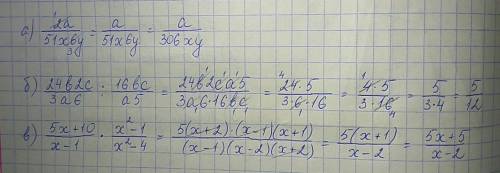 а) 2a/51x6y = a/51x6y = a/306xy
б) 24b2c/3a6 · 16bc/a5 = 24b2ca5/3a6·16bc = 24·5/3·6·16 = 4·5/3·16 = 5/3·4 = 5/12
в) 5x+10/x-1 · x²-1/x²-4 = 5(x+2)·(x-1)(x+1)/(x-1)(x-2)(x+2) = 5(x+1)/x-2 = 5x+5/x-2